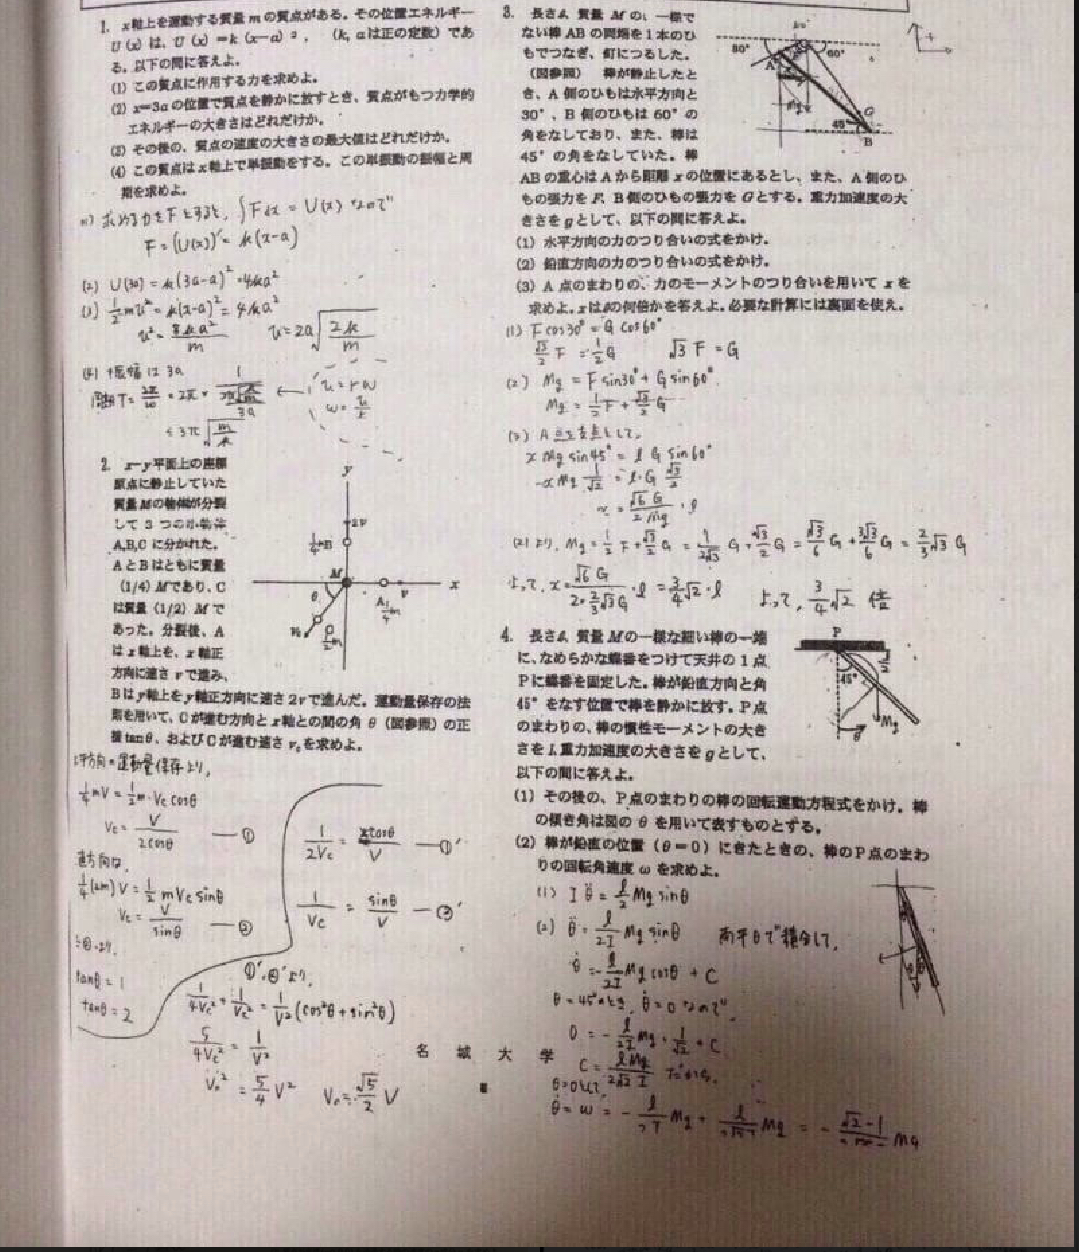 1. x軸上を運動する質量mの質点がある。その位置エネルギー
U(x)は、U(x)=k(x-a)²、(k, aは正の定数)であ
る。以下の問に答えよ。
(1) この質点に作用する力を求めよ。
(2) x=3aの位置で質点を静かに放すとき、質点がもつ力学的
エネルギーの大きさはどれだけか。
(3) その後の、質点の速度の大きさの最大値はどれだけか。
(4) この質点はx軸上で単振動をする。この単振動の振幅と周
期を求めよ。
(1) 求める力をFとすると、∫Fdx = U(x) なので
F = (U(x))' = k(x-a)
(2) U(3a) = k(3a-a)² = 4ka²
(3) 1/2 mv² = k(x-a)² = 4ka²
v² = 8ka²/m v = 2a√(2k/m)
(4) 振幅は 3a
周期T = 2π/ω = 2π×
= 3π√(m/k)
v = rω
2. x-y平面上の座標
原点に静止していた
質量Mの物体が分裂
して3つの小物体
A,B,Cに分かれた。
AとBはともに質量
(1/4)Mであり、C
は質量(1/2)Mで
あった。分裂後、A
はx軸上を、x軸正
方向に速さvで進み、
Bはy軸上をy軸正方向に速さ2vで進んだ。運動量保存の法
則を用いて、Cが進む方向とx軸との間の角θ(図参照)の正
接tanθ、およびCが進む速さv_cを求めよ。
y
2v
M
x
θ
A
v
運動量保存より,
1/4 mV = 1/2 m・Vc cosθ
Vc = V/2cosθ ―①
1/4 (2m) V = 1/2 m Vc sinθ
Vc = V/sinθ ―②
tanθ = 2
1/Vc = sinθ/V ―②'
①', ②'より,
1/4Vc² + 1/Vc² = 1/V² (cos²θ + sin²θ)
5/4Vc² = 1/V²
Vc² = 5/4 V² Vc = √5/2 V
3. 長さl, 質量Mの、一様で
ない棒ABの両端を1本のひ
もでつなぎ、釘につるした。
(図参照) 棒が静止したと
き、A側のひもは水平方向と
30°、B側のひもは60°の
角をなしており、また、棒は
45°の角をなしていた。棒
ABの重心はAから距離xの位置にあるとし、また、A側のひ
もの張力をF、B側のひもの張力をGとする。重力加速度の大
きさをgとして、以下の問に答えよ。
(1) 水平方向の力のつり合いの式をかけ。
(2) 鉛直方向の力のつり合いの式をかけ。
(3) A点のまわりの、力のモーメントのつり合いを用いてxを
求めよ。xはlの何倍かを答えよ。必要な計算には裏面を使え。
30°
60°
A
G
45°
B
(1) F cos30° = G cos60°
√3/2 F = 1/2 G √3 F = G
(2) Mg = F sin30° + G sin60°
Mg = 1/2 F + √3/2 G
(3) A点を支点として,
x Mg sin45° = l G sin60°
x Mg 1/√2 = l・G √3/2
x = √6 G/2Mg ・l
(2)より, Mg = 1/2 F + √3/2 G = 1/2√3 G + √3/2 G = √3/6 G + 3√3/6 G = 2/3 √3 G
よって, x = √6 G/2・2/3√3 G ・l = 3/4 √2・l よって, 3/4 √2 倍
4. 長さl, 質量Mの一様な細い棒の一端
に、なめらかな蝶番をつけて天井の1点
Pに蝶番を固定した。棒が鉛直方向と角
45°をなす位置で棒を静かに放す。P点
のまわりの、棒の慣性モーメントの大き
さをI、重力加速度の大きさをgとして、
以下の問に答えよ。
(1) その後の、P点のまわりの棒の回転運動方程式をかけ。棒
の傾き角は図のθを用いて表すものとする。
(2) 棒が鉛直の位置(θ=0)にきたときの、棒のP点のまわ
りの回転角速度ωを求めよ。
P
45°
Mg
θ
(1) I θ̈ = l/2 Mg sinθ
(2) θ̈ = l/2I Mg sinθ 両辺θで積分して,
θ̇ = - l/2I Mg cosθ + C
θ = 45°のとき, θ̇ = 0 なので
0 = - l/2I Mg・1/√2 + C
C = lMg/2√2 I だから,
θ̇ = ω = - l/2I Mg +
名城大学